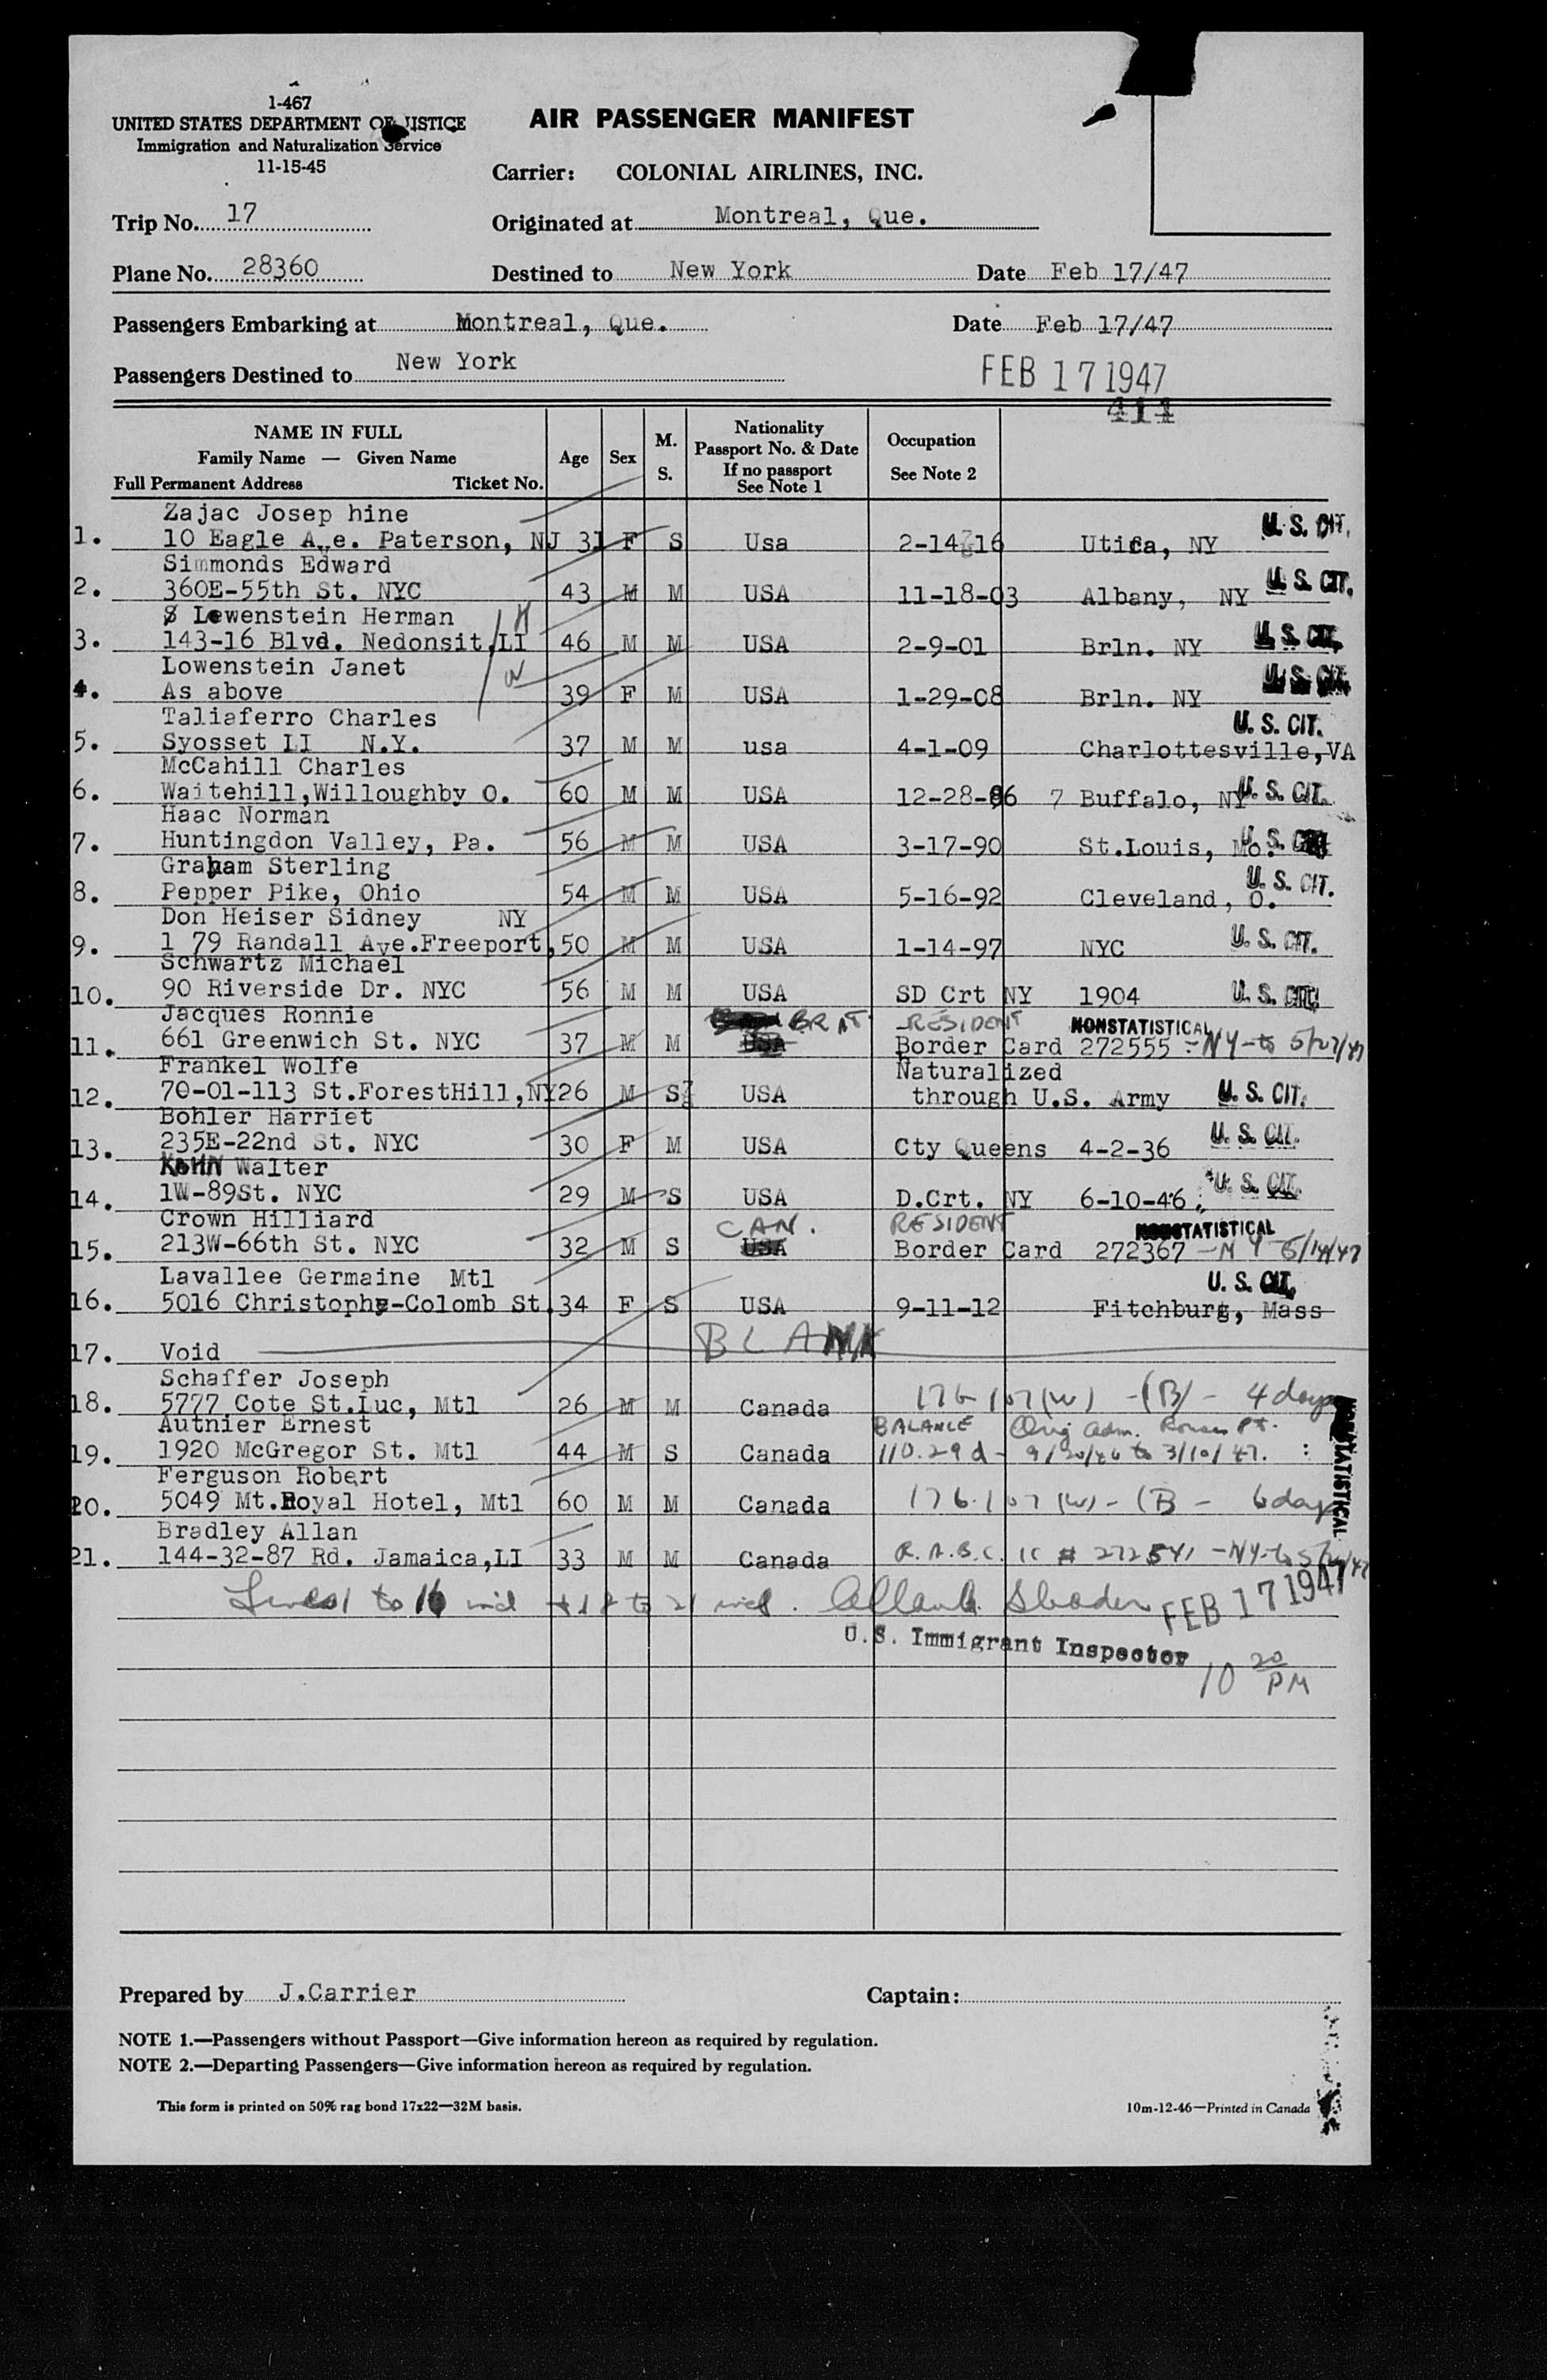 1-467
UNITED STATES DEPARTMENT OF JUSTICE
Immigration and Naturalization Service
11-15-45
AIR PASSENGER MANIFEST
Carrier: COLONIAL AIRLINES, INC.
Trip No. 17
Originated at Montreal, Que.
Plane No. 28360
Destined to New York
Date Feb 17/47
Passengers Embarking at Montreal, Que.
Date Feb 17/47
Passengers Destined to New York
FEB 17 1947
414
NAME IN FULL
Family Name — Given Name
Full Permanent Address Ticket No.
Age
Sex
M.
S.
Nationality
Passport No. & Date
If no passport
See Note 1
Occupation
See Note 2
Zajac Josep hine
1. 10 Eagle Ave. Paterson, NJ 31 F S Usa 2-14-16 Utica, NY U. S. CIT.
Simmonds Edward
2. 360E-55th St. NYC 43 M M USA 11-18-03 Albany, NY U. S. CIT.
Lewenstein Herman H
3. 143-16 Blvd. Nedonsit,LI 46 M M USA 2-9-01 Brln. NY U. S. CIT.
Lowenstein Janet W
4. As above 39 F M USA 1-29-08 Brln. NY U. S. CIT.
Taliaferro Charles
5. Syosset LI N.Y. 37 M M usa 4-1-09 Charlottesville,VA U. S. CIT.
McCahill Charles
6. Waitehill,Willoughby O. 60 M M USA 12-28-86 7 Buffalo, NY U. S. CIT.
Haac Norman
7. Huntingdon Valley, Pa. 56 M M USA 3-17-90 St.Louis, Mo. U. S. CIT.
Graham Sterling
8. Pepper Pike, Ohio 54 M M USA 5-16-92 Cleveland, O. U. S. CIT.
Don Heiser Sidney NY
9. 1 79 Randall Ave.Freeport, 50 M M USA 1-14-97 NYC U. S. CIT.
Schwartz Michael
10. 90 Riverside Dr. NYC 56 M M USA SD Crt NY 1904 U. S. CIT.
Jacques Ronnie BR AT RESIDENT NONSTATISTICAL
11. 661 Greenwich St. NYC 37 M M USA Border Card 272555 - NY - to 5/27/47
Frankel Wolfe Naturalized
12. 70-01-113 St.ForestHill,NY 26 M S USA through U.S. Army U. S. CIT.
Bohler Harriet
13. 235E-22nd St. NYC 30 F M USA Cty Queens 4-2-36 U. S. CIT.
KAHN Walter
14. 1W-89St. NYC 29 M S USA D.Crt. NY 6-10-46 U. S. CIT.
Crown Hilliard CAN. RESIDENT NONSTATISTICAL
15. 213W-66th St. NYC 32 M S USA Border Card 272367 - NY - 5/14/47
Lavallee Germaine Mtl
16. 5016 Christophe-Colomb St. 34 F S USA 9-11-12 Fitchburg, Mass U. S. CIT.
17. Void BLANK
Schaffer Joseph
18. 5777 Cote St.Luc, Mtl 26 M M Canada 176.107 (W) - (B) - 4 days
Autnier Ernest BALANCE Orig adm. Rouses Pt.
19. 1920 McGregor St. Mtl 44 M S Canada 110.29 d - 9/20/46 to 3/10/47.
Ferguson Robert
20. 5049 Mt.Royal Hotel, Mtl 60 M M Canada 176.107 (W) - (B - 6 days
NONSTATISTICAL
Bradley Allan
21. 144-32-87 Rd. Jamaica,LI 33 M M Canada R.A.B.C. IC # 272541 - NY - to
Lines 1 to 16 incl + 18 to 21 incl. FEB 17 1947
U.S. Immigrant Inspector
10 20 PM
Prepared by J.Carrier
Captain:
NOTE 1.—Passengers without Passport—Give information hereon as required by regulation.
NOTE 2.—Departing Passengers—Give information hereon as required by regulation.
This form is printed on 50% rag bond 17x22—32M basis.
10m-12-46—Printed in Canada